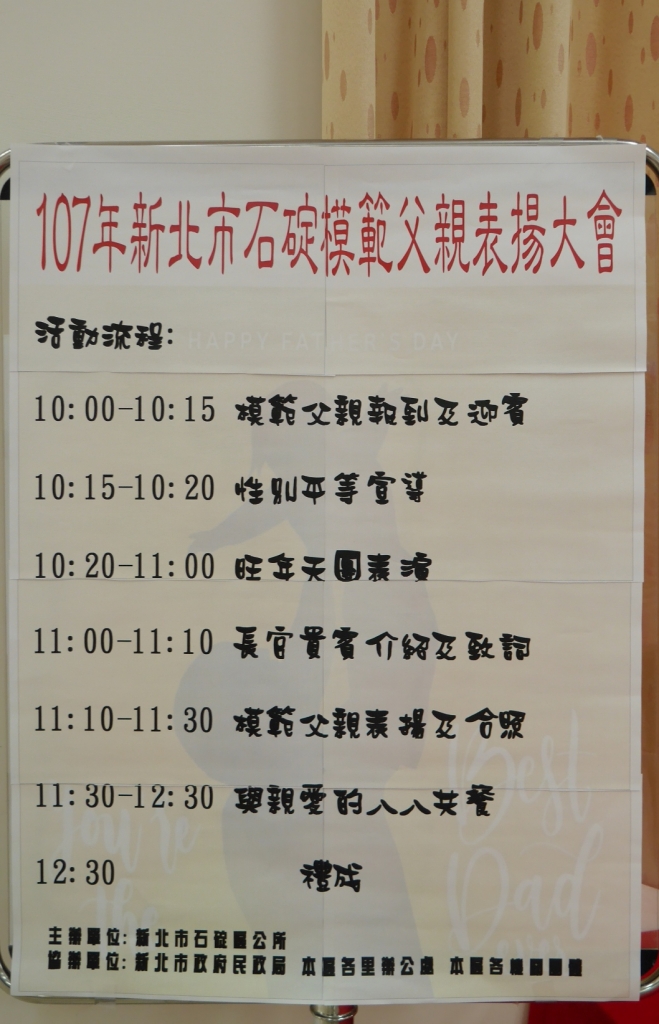 107年新北市石碇模範父親表揚大會
活動流程:
HAPPY FATHER'S DAY
10:00-10:15 模範父親報到及迎賓
10:15-10:20 性別平等宣導
10:20-11:00 旺年天團表演
11:00-11:10 長官貴賓介紹及致詞
11:10-11:30 模範父親表揚及合照
11:30-12:30 與親愛的人人共餐
12:30 禮成
You're the
Best Dad ever
主辦單位:新北市石碇區公所
協辦單位:新北市政府民政局 本區各里辦公處 本區各機關團體